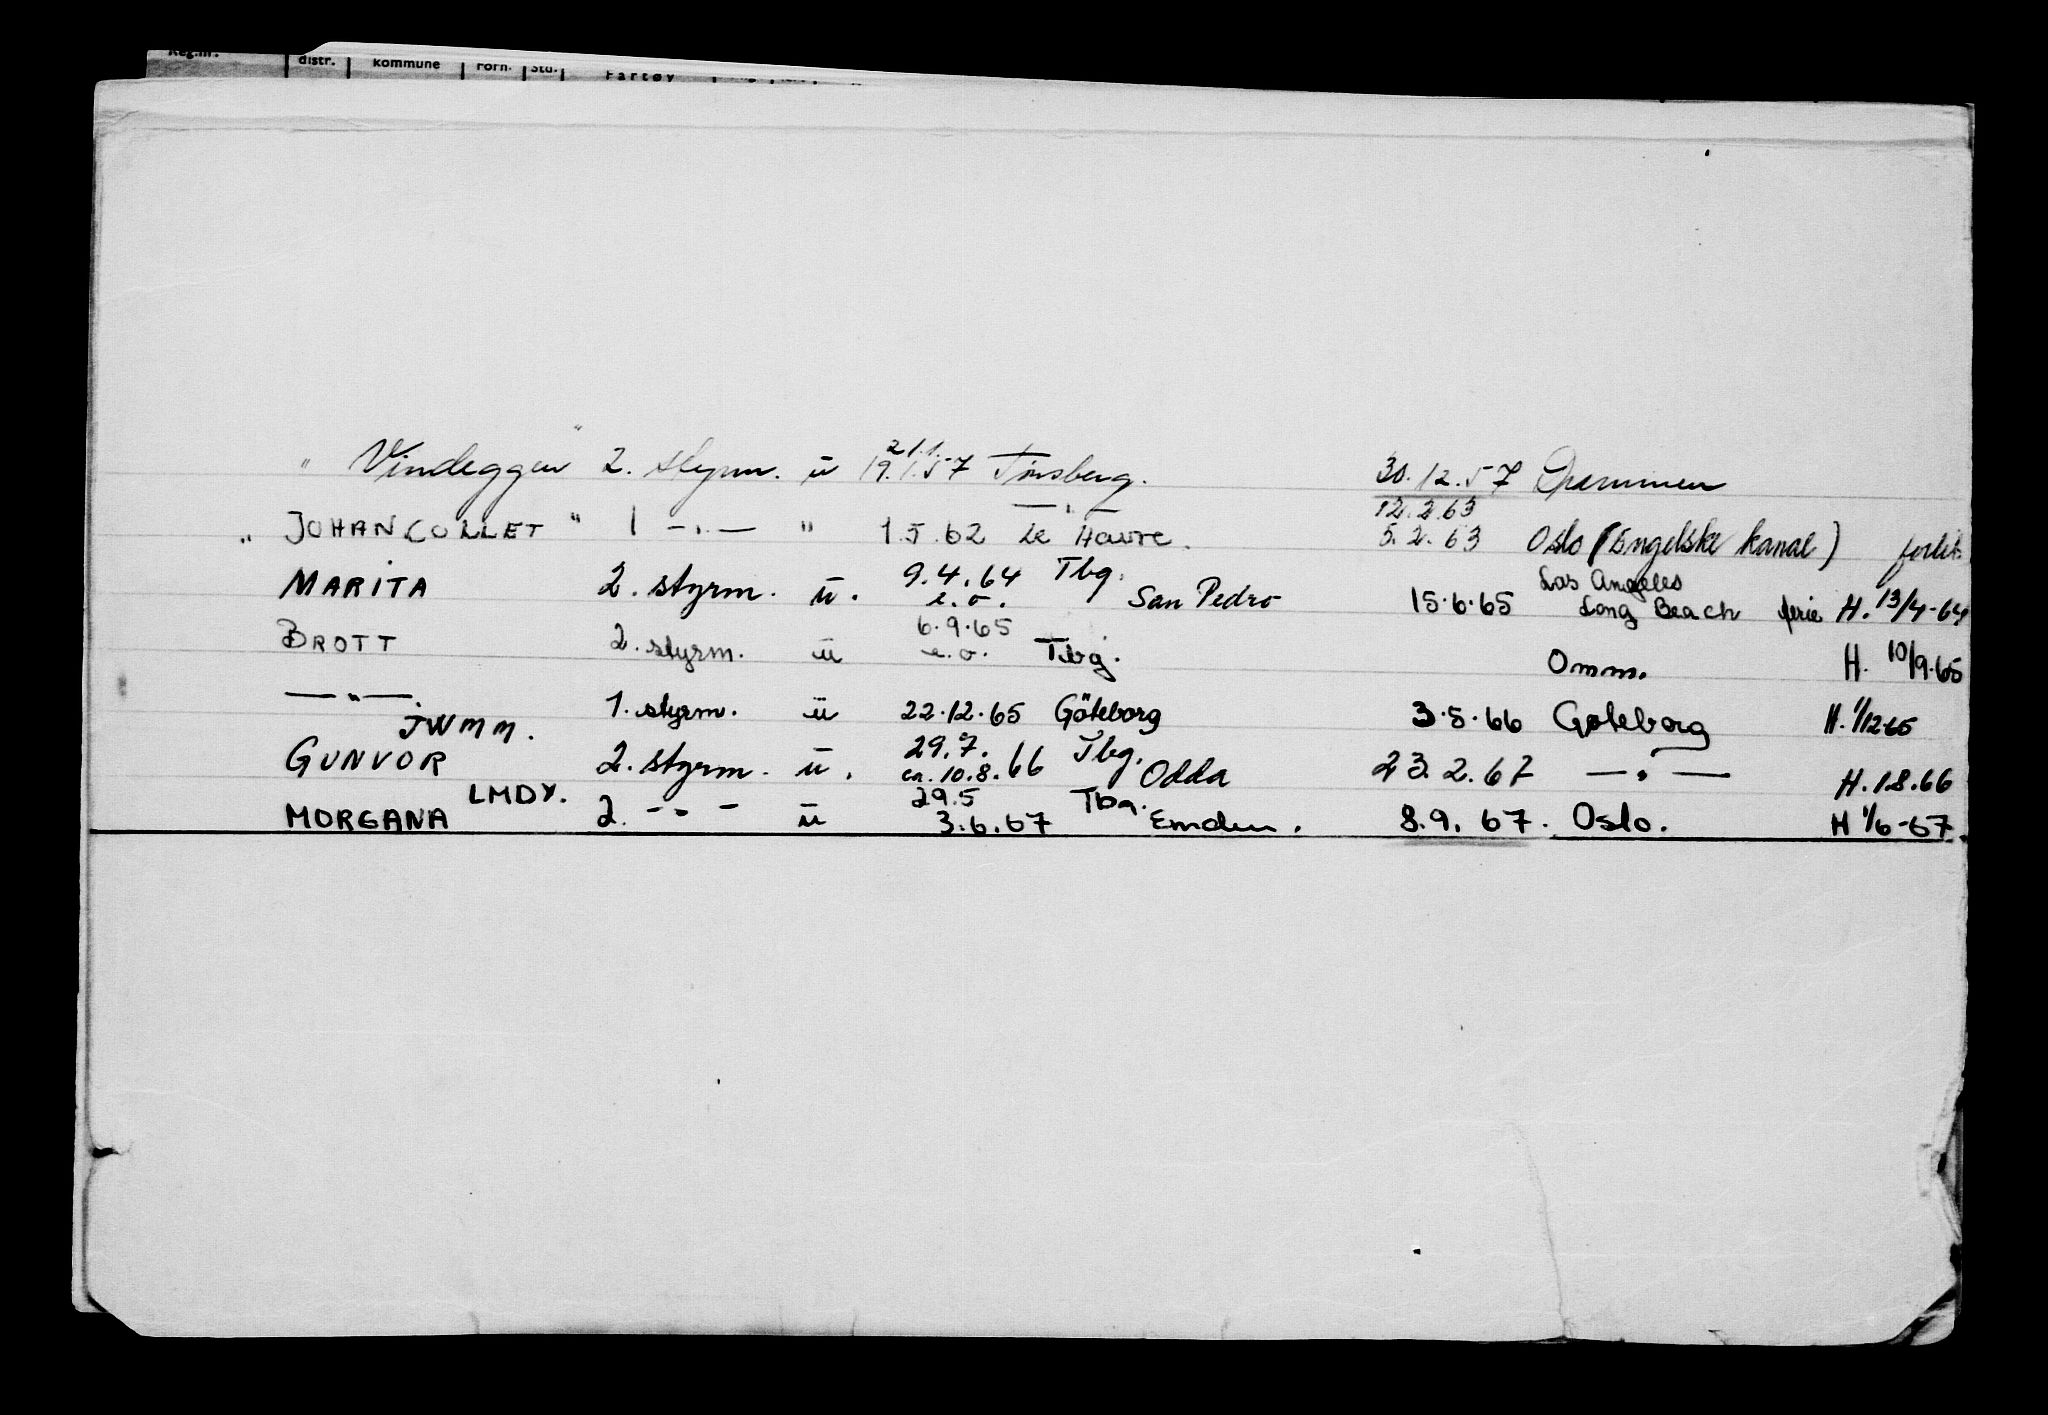 distr. kommune Forn. Std. Fartøy
" Vindeggen " 2. styrm. u 21.1. 19.1.57 Tønsberg. 30.12.57 Drammen
— " — 12.2.63
" JOHAN COLLET " 1 — " — " 1.5.62 Le Havre. 5.2.63 Oslo (Engelske kanal)
MARITA 2. styrm. u. 9.4.64 e.o. Tbg. San Pedro 15.6.65 Los Angeles Long Beach ferie H. 13/4-64
BROTT 2. styrm. u 6.9.65 e.o. Tbg. Omm. H. 10/9.65
— " — 1. styrm. u 22.12.65 Göteborg 3.5.66 Gøteborg H. 1/12 65
JWMM.
GUNVOR 2. styrm. u. 29.7. ca. 10.8.66 Tbg. Odda 23.2.67 — " — H. 1.8.66
LMDY.
MORGANA 2. — " — u 29.5 3.6.67 Tbg. Emden. 8.9.67. Oslo. H 1/6-67.